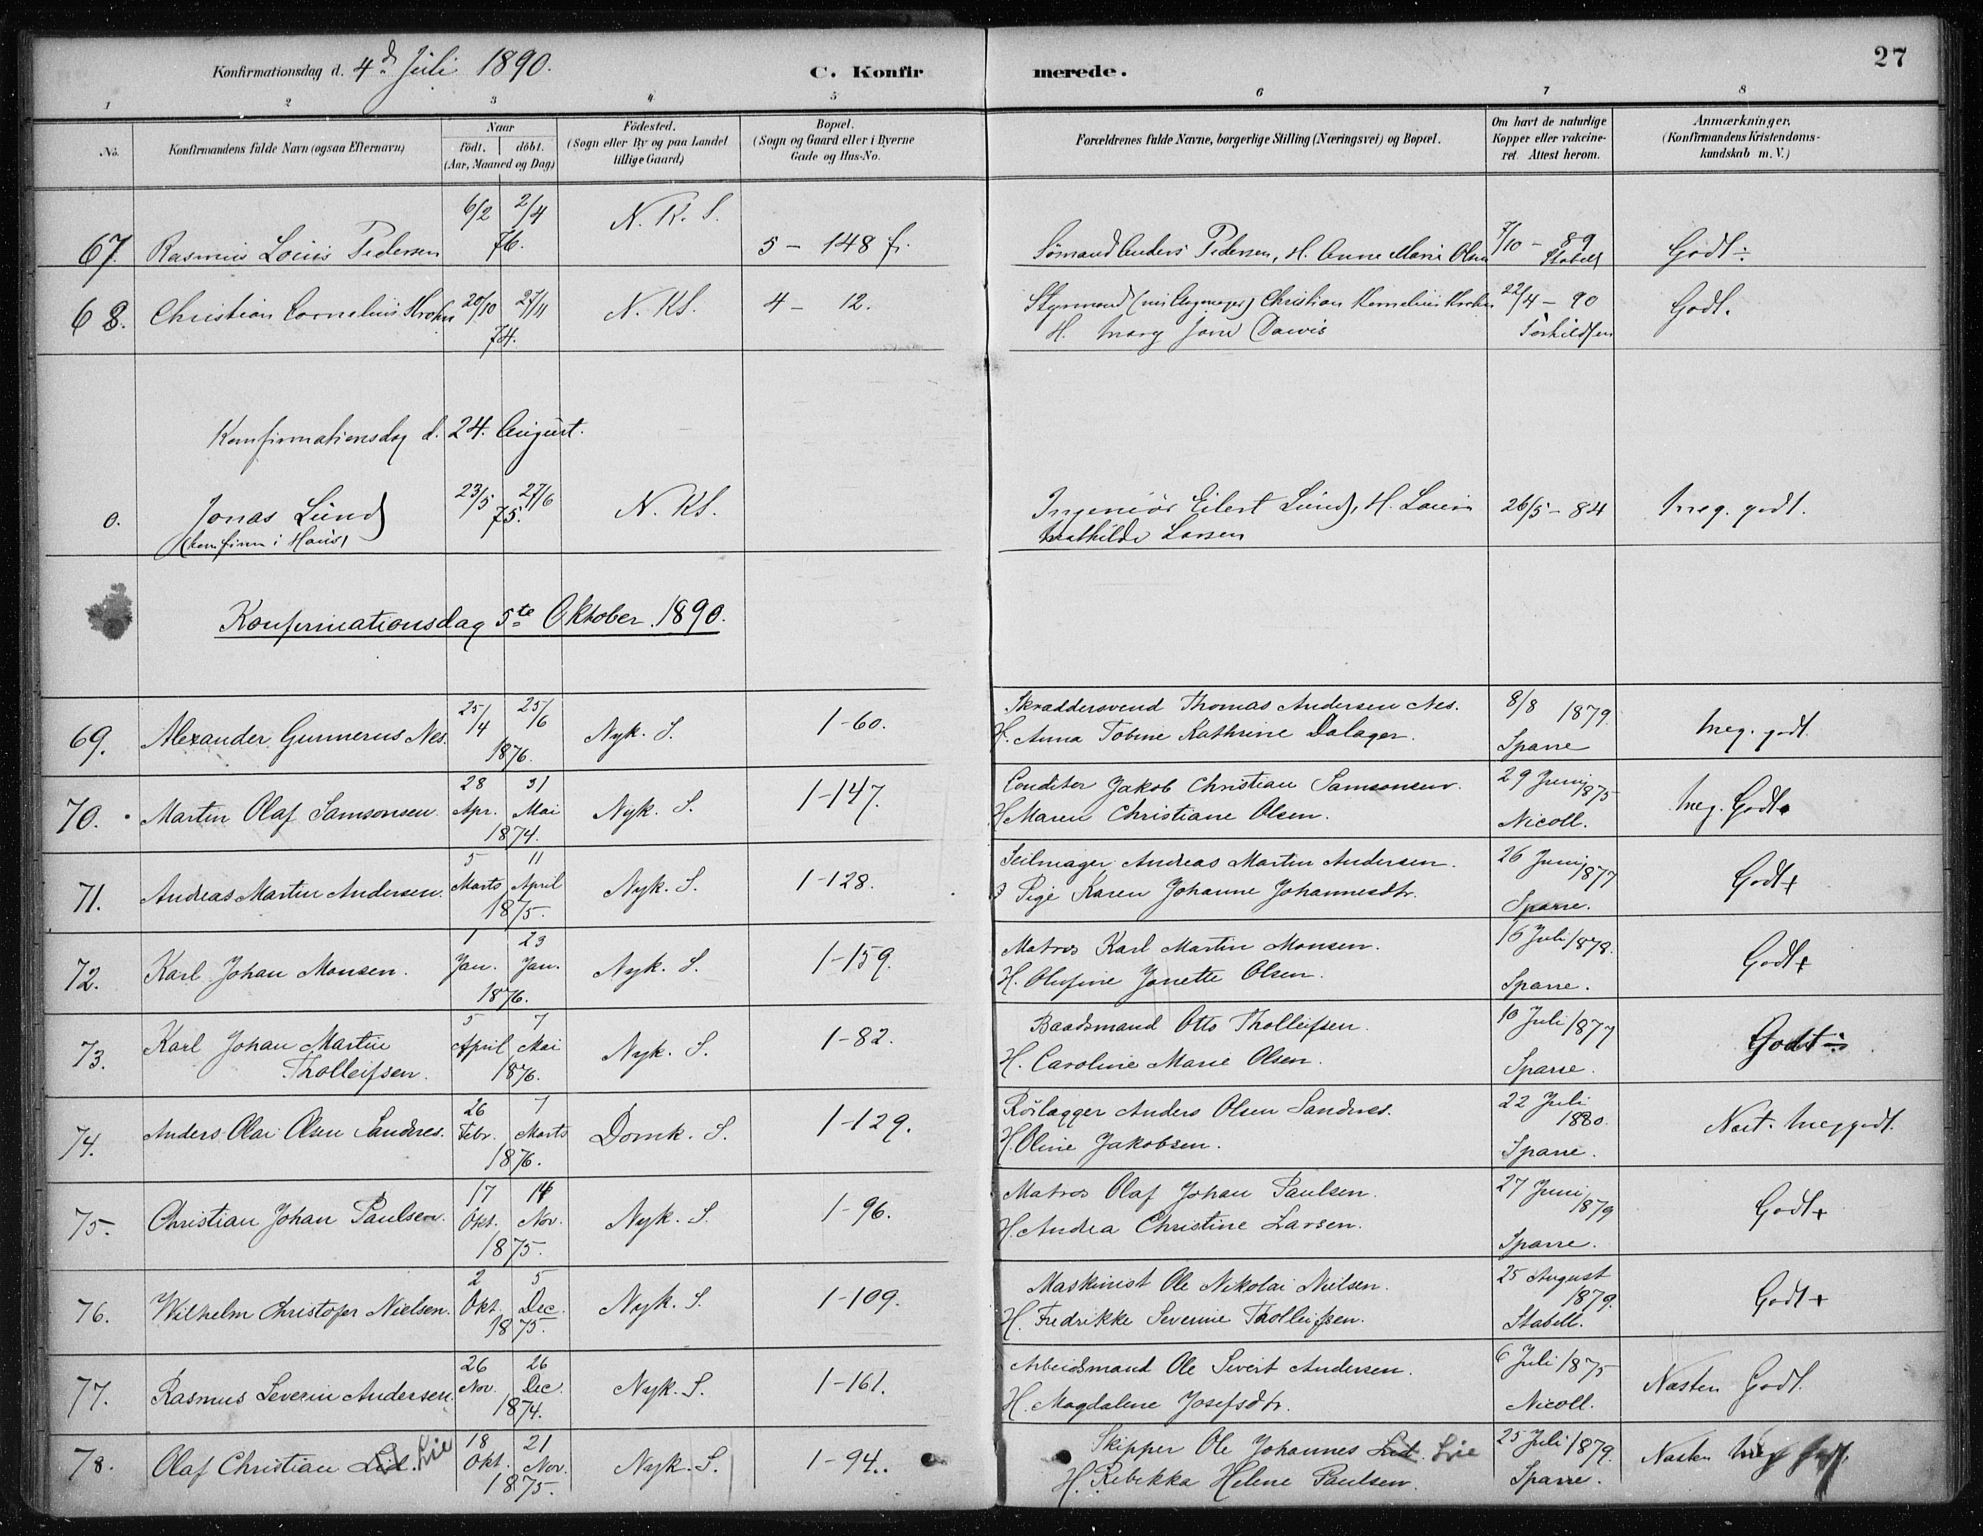 Konfirmationsdag d. 4d Juli 1890. C. Konfirmerede. 27
1 2 3 4 5 6 7 8
No. Konfirmandens fulde Navn (ogsaa Efternavn) Naar født. døbt. (Aar, Maaned og Dag) Fødested. (Sogn eller By og paa Landet tillige Gaard) Bopæl. (Sogn og Gaard eller i Byerne Gade og Hus-No. Forældrenes fulde Navne, borgerlige Stilling (Næringsvei) og Bopæl. Om havt de naturlige Kopper eller vakcineret. Attest herom. Anmærkninger, (Konfirmandens Kristendomskundskab m. V.)
67. Rasmus Louis Pedersen 6/2 2/4 76. N. K. S. 5 - 148 f. Sømand Anders Pedersen, H. Anne Marie Olsen 7/10 - 89 Stabell Godt ÷
68. Christian Cornelius Krohn 20/10 27/11 74. N. KS. 4 - 12. Styrmand Christian Kornelius Krohn
H. Mary Jane Dawis 22/4 - 90 Torkildsen Godt.
Konfirmationsdag d. 24. August.
0. Jonas Lund 23/5 27/6 75. N. KS. Ingeniør Eilert Lund, H. Louise 26/5 - 84 Meg. godt.
(konfirm i Haus) Mathilde Larsen
Konfirmationsdag 5te Oktober 1890.
69. Alexander Gunnerus Nes. 25/4 25/6 1876. Nyk. S. 1-60. Skræddersvend Thomas Andersen Nes.
H. Anna Tobine Kathrine Dalager. 8/8 1879. Sparre Meg. godt.
70. Martin Olaf Samsonsen. 28 Apr. 31 Mai 1874. Nyk. S. 1-147. Conditor Jakob Christian Samsonsen.
H Maren Christiane Olsen. 29 Juni 1875 Nicoll. Meg. Godt
71. Andreas Martin Andersen. 5 Marts 11 April 1875. Nyk. S. 1-128. Seilmager Andreas Martin Andersen.
Pige Karen Johanne Johannesdtr. 26 Juni 1877 Sparre. Godt +
72. Karl Johan Monsen. 1 Jan. 23 Jan. 1876. Nyk. S. 1-159. Matros Karl Martin Monsen.
H. Olufine Janette Olsen. 16 Juli 1878. Sparre. Godt +
73. Karl Johan Martin Tholleifsen. 5 April 7 Mai 1876. Nyk. S. 1-82. Baadsmand Otto Tholleifsen.
H. Caroline Marie Olsen. 10 Juli 1877 Sparre. Godt ÷
74. Anders Olai Olsen Sandnes. 26 Febr. 7 Marts 1876. Domk. S. 1-129. Rørlægger Anders Olsen Sandnes.
H. Oline Jakobsen. 22 Juli 1880. Sparre. Næst. Meg godt.
75. Christian Johan Paulsen. 17 Okt. 14 Nov. 1875. Nyk. S. 1-96. Matros Olaf Johan Paulsen.
H. Andrea Christine Larsen. 27 Juni 1879 Sparre. Godt +
76. Wilhelm Christofer Nielsen. 2 Okt. 5 Dec. 1875. Nyk. S. 1-109. Maskinist Ole Nikolai Nielsen.
H. Fredrikke Severine Tholleifsen. 25 August 1879. Stabell. Godt +
77. Rasmus Severin Andersen. 26 Nov. 26 Dec. 1874. Nyk. S. 1-161. Arbeidsmand Ole Sivert Andersen.
H. Magdalene Josefsdtr. 6 Juli 1875 Nicoll. Næsten Godt.
78. Olaf Christian Lid. Lie 18 Okt. 21 Nov. 1875. Nyk. S. 1-94. Skipper Ole Johannes Lid. Lie
H. Rebekka Helene Paulsen. 25 Juli 1879. Sparre. Næsten Meg godt.